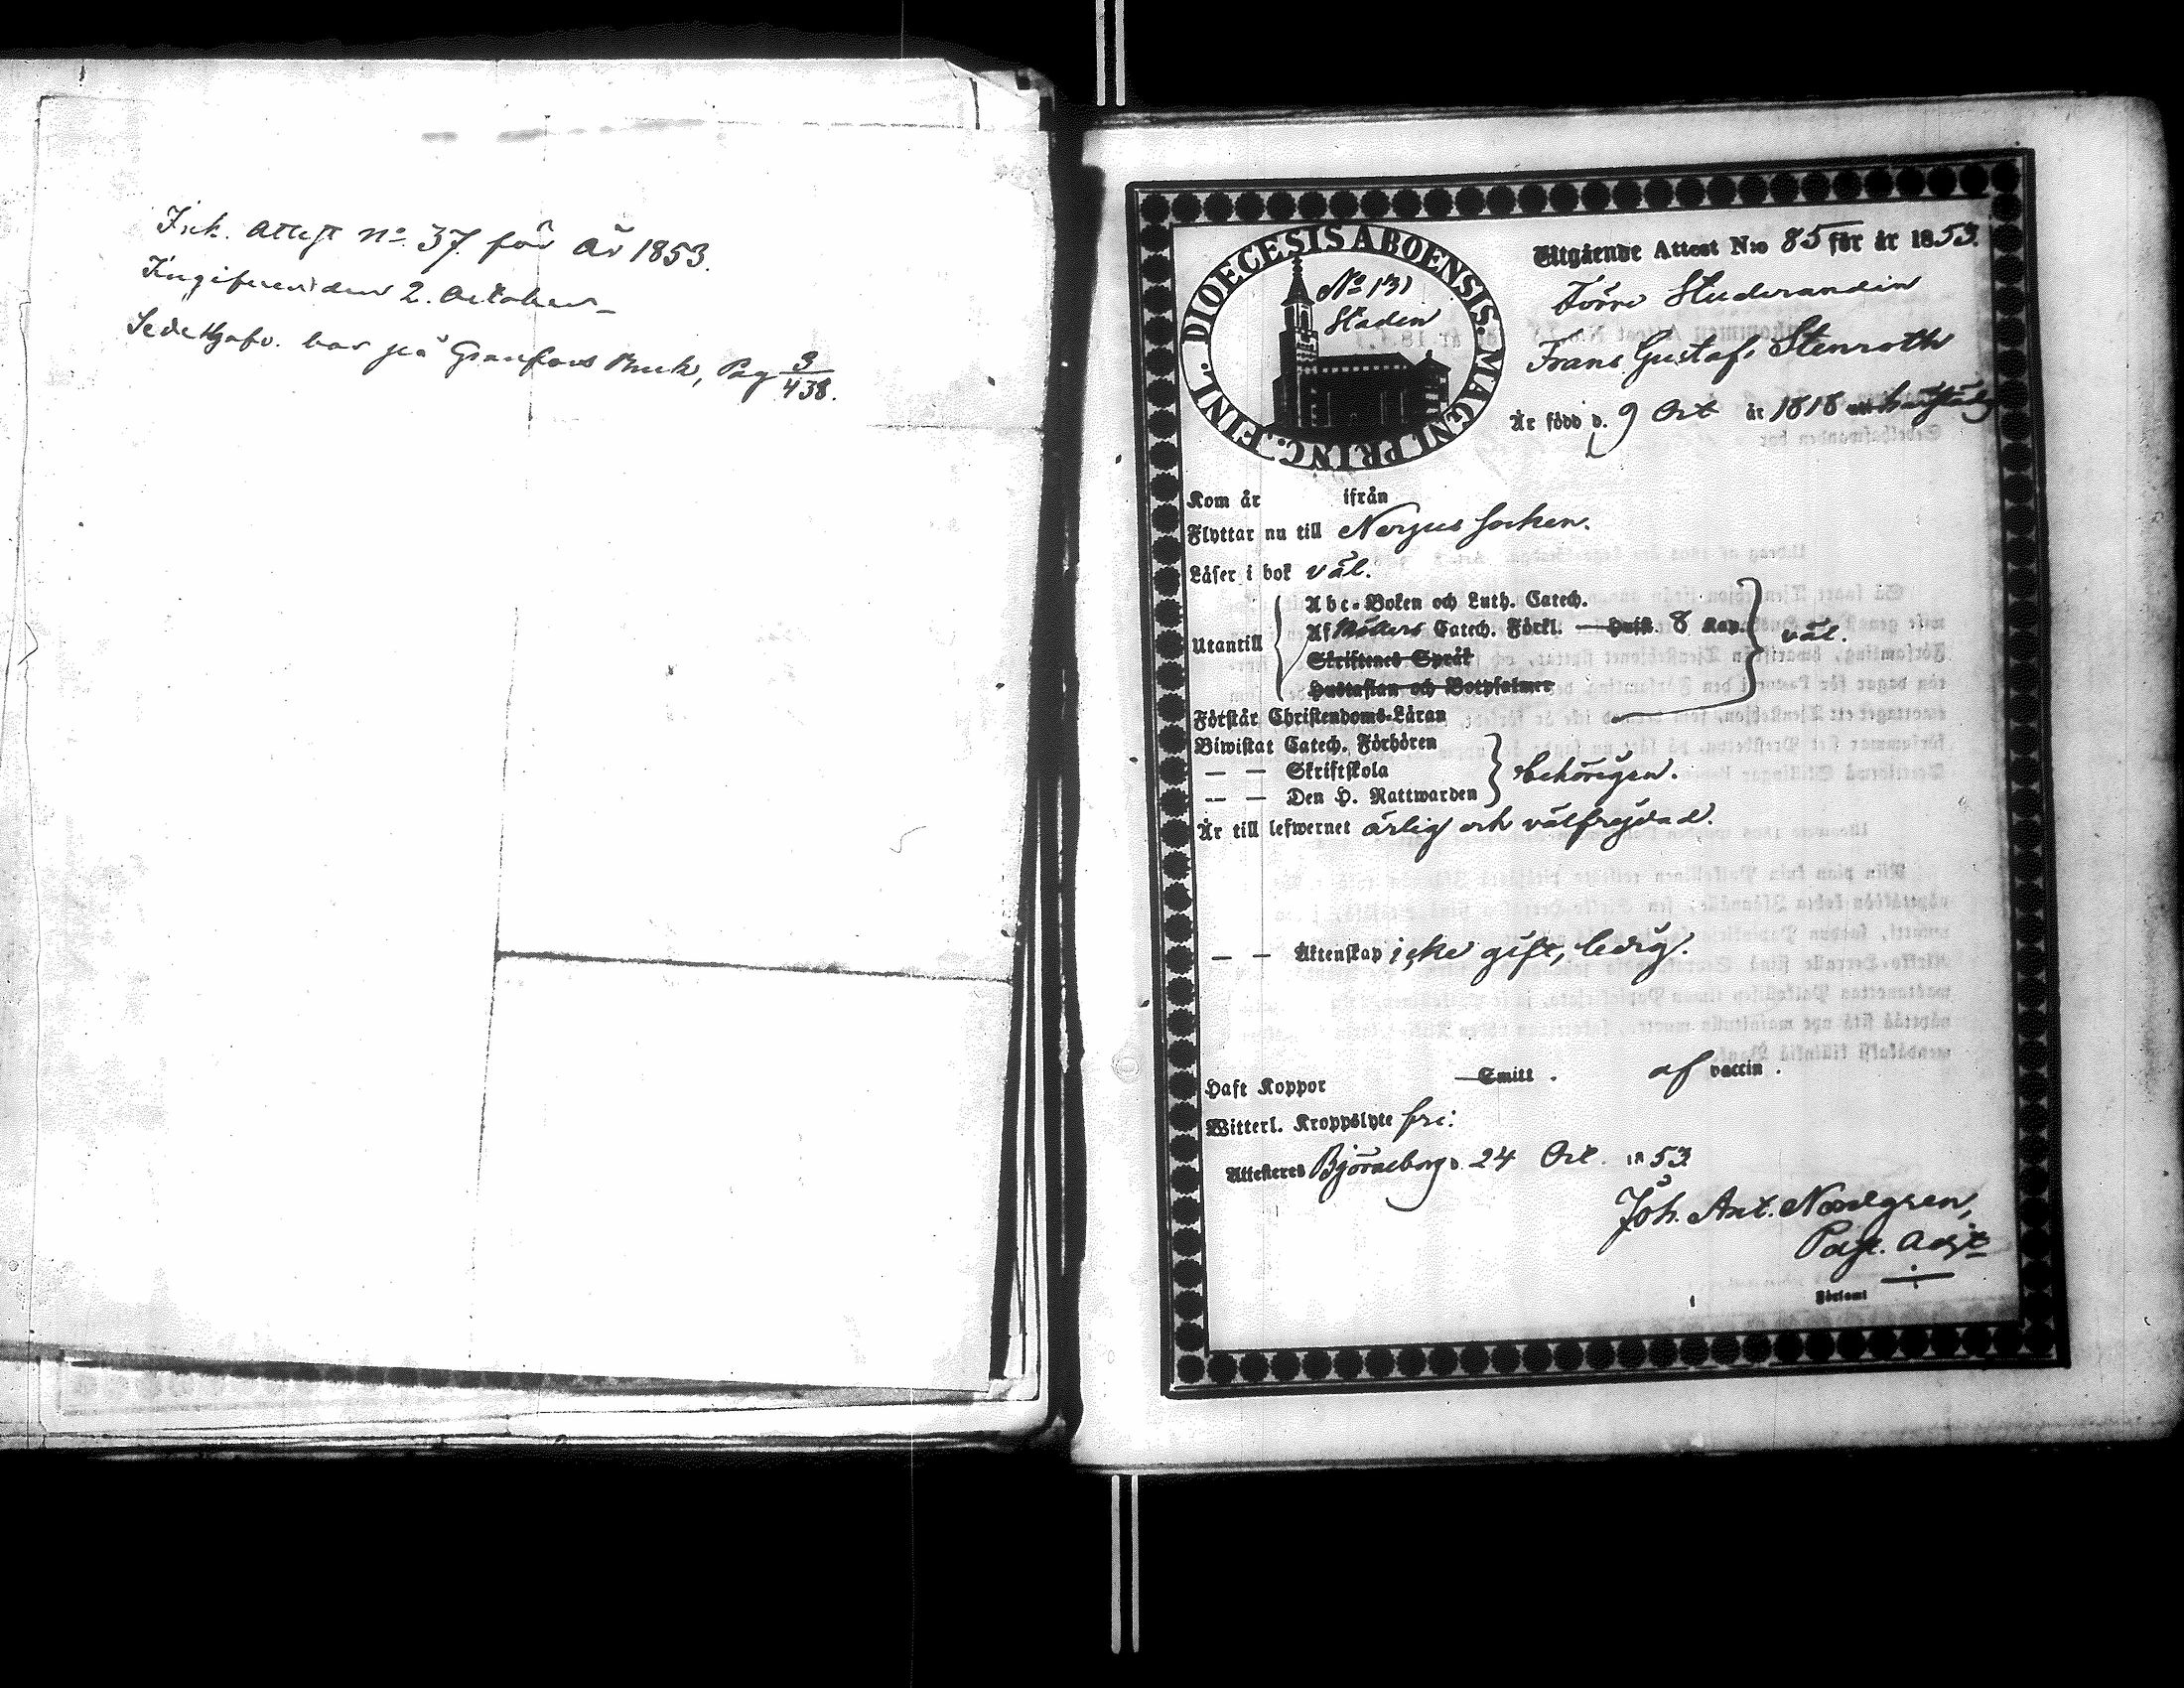 Ink. Attest No 37. för År 1853.
Ingifven den 2. October
har på Granfors Bruk, Pag 3/438.
DIOECESIS ABOENSIS. MAGNI PRINC. FINL.
No 131
Staden
Utgående Attest N:o 85 för år 1853.
Förre Studeranden
Frans Gustaf Stenroth
Är född d. 9 Oct år 1818
Kom år ifrån
Flyttar nu till Nerpes socken.
Läser i bok väl.
Utantill
Abc-Boken och Luth. Catech.
Af Möllers Catech. Förkl. — Husk. 8 Kap. väl.
Skriftenes Språk
Hustaflan och Botpsalmer
Förstår Christendoms-Läran
Biwistat Catech. Förhören
— — Skriftskola behörigen.
— — Den H. Nattwarden
Är till lefwernet ärlig och välfrejdad.
— — Äktenskap icke gift, ledig.
Haft Koppor Smitt . af vaccin .
Witterl. Kroppslyte fri.
Attesteres Björneborg d. 24 Oct. 1853
Joh. Ant. Nordgren,
Past. Adjt
Förlamt